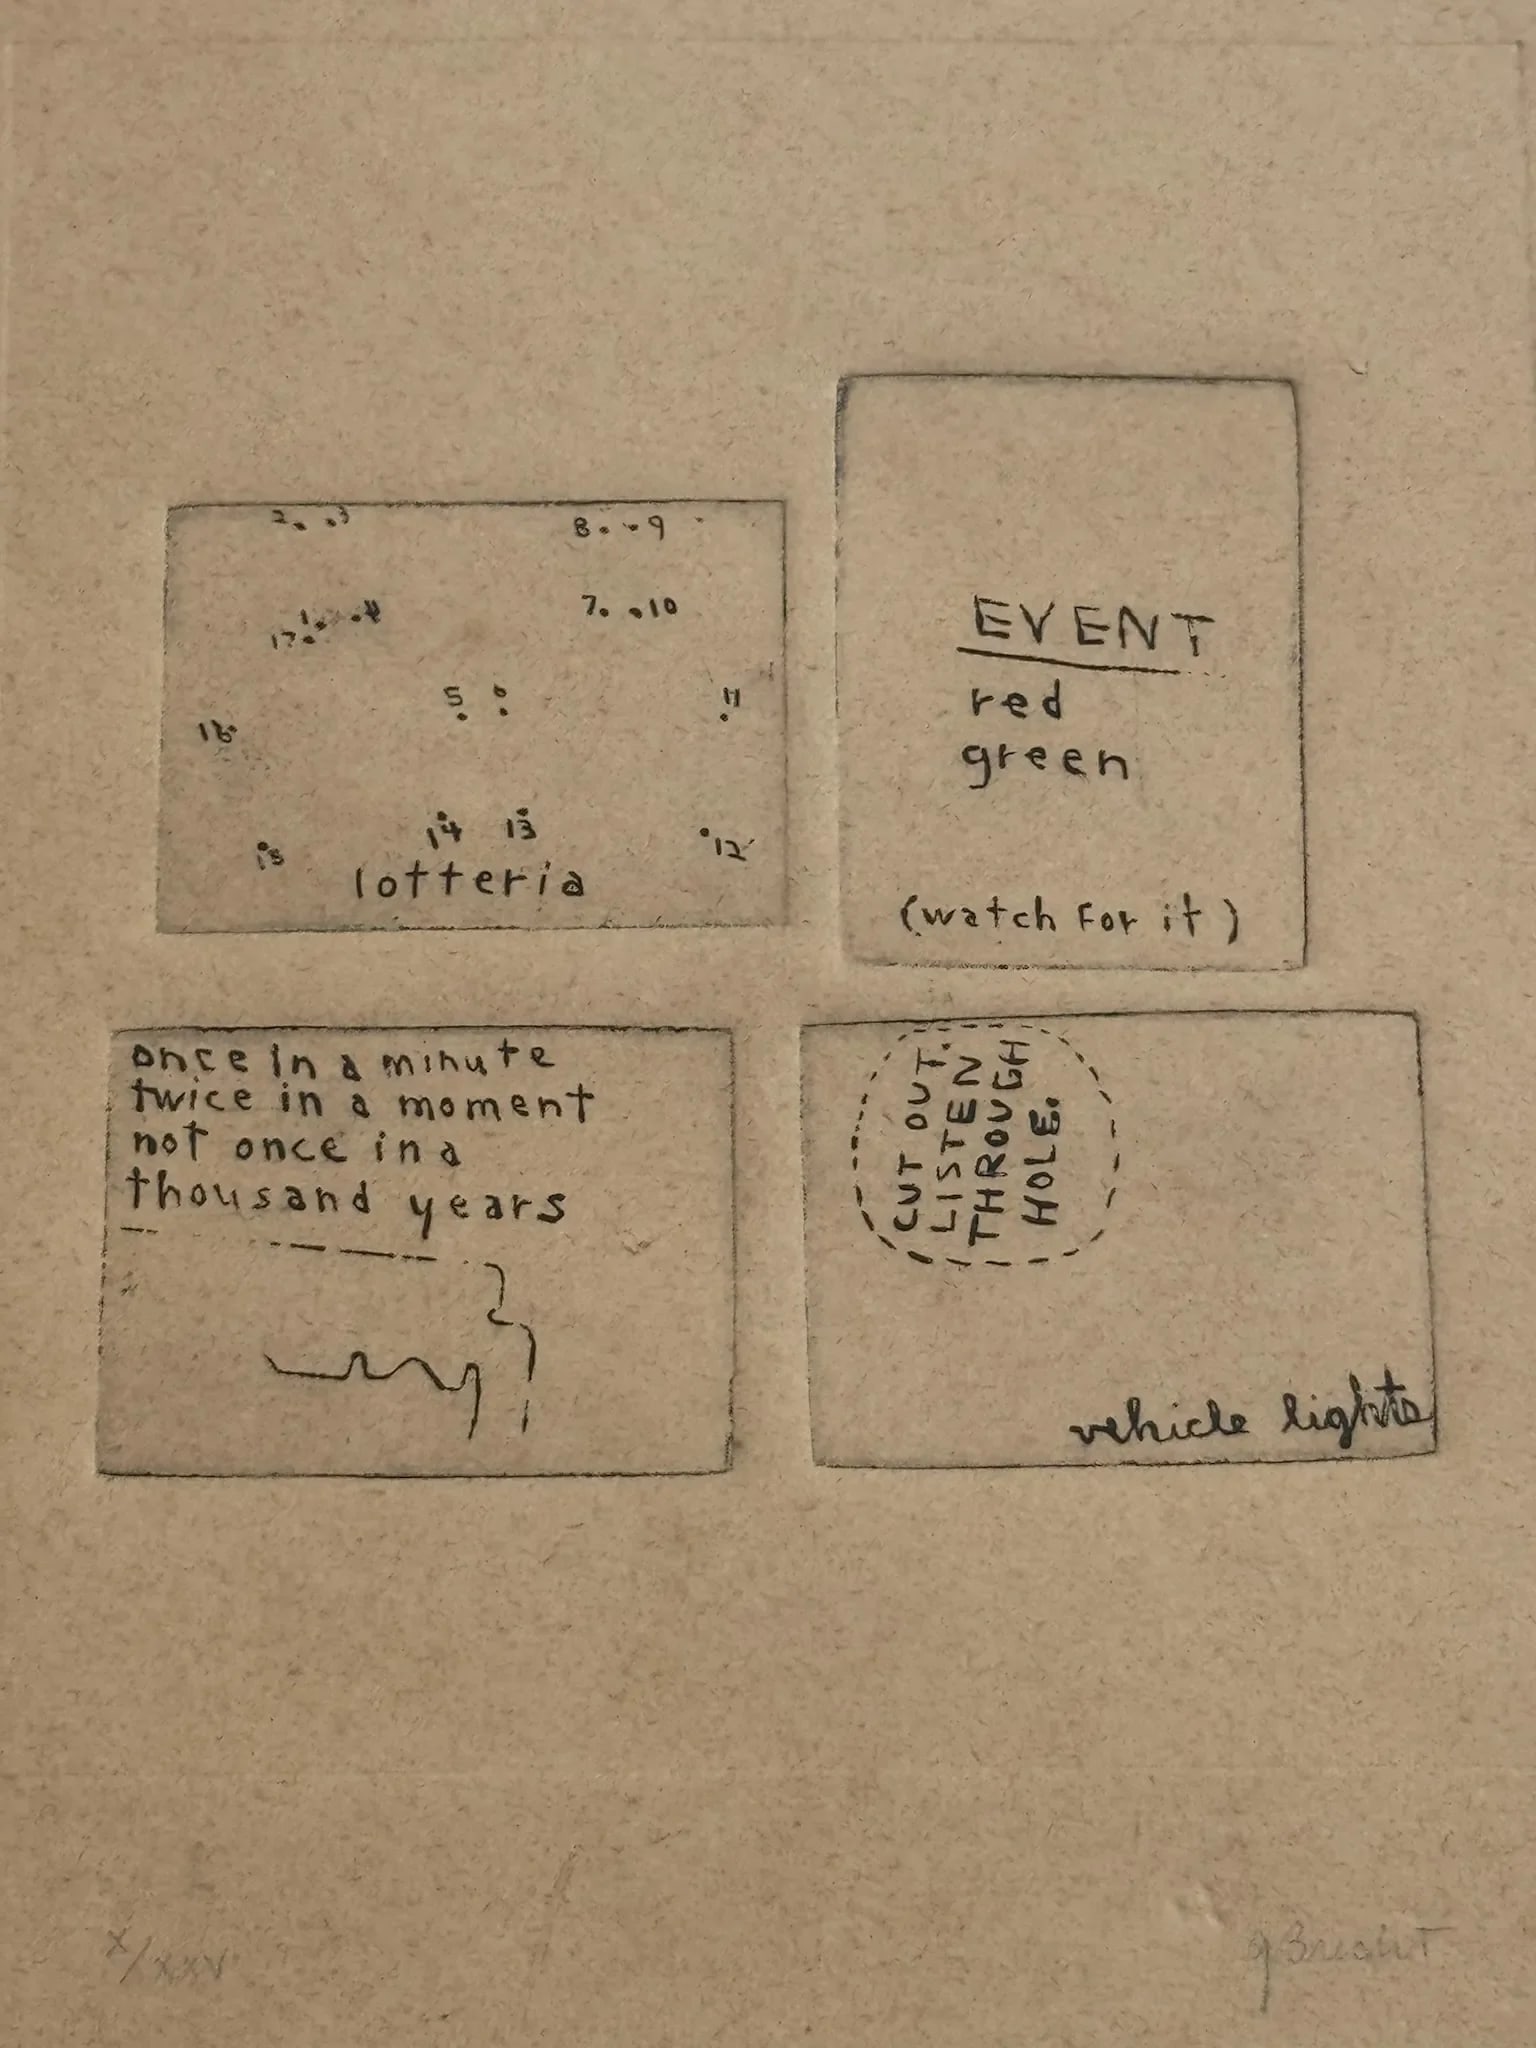 2. .3
8. .9
1 .4
17.
7. .10
5 6
11
16.
14 13
.12
15
lotteria
EVENT
red
green
(watch for it)
once in a minute
twice in a moment
not once in a
thousand years
CUT OUT.
LISTEN
THROUGH
HOLE.
vehicle lights
X/XXV
g Brecht